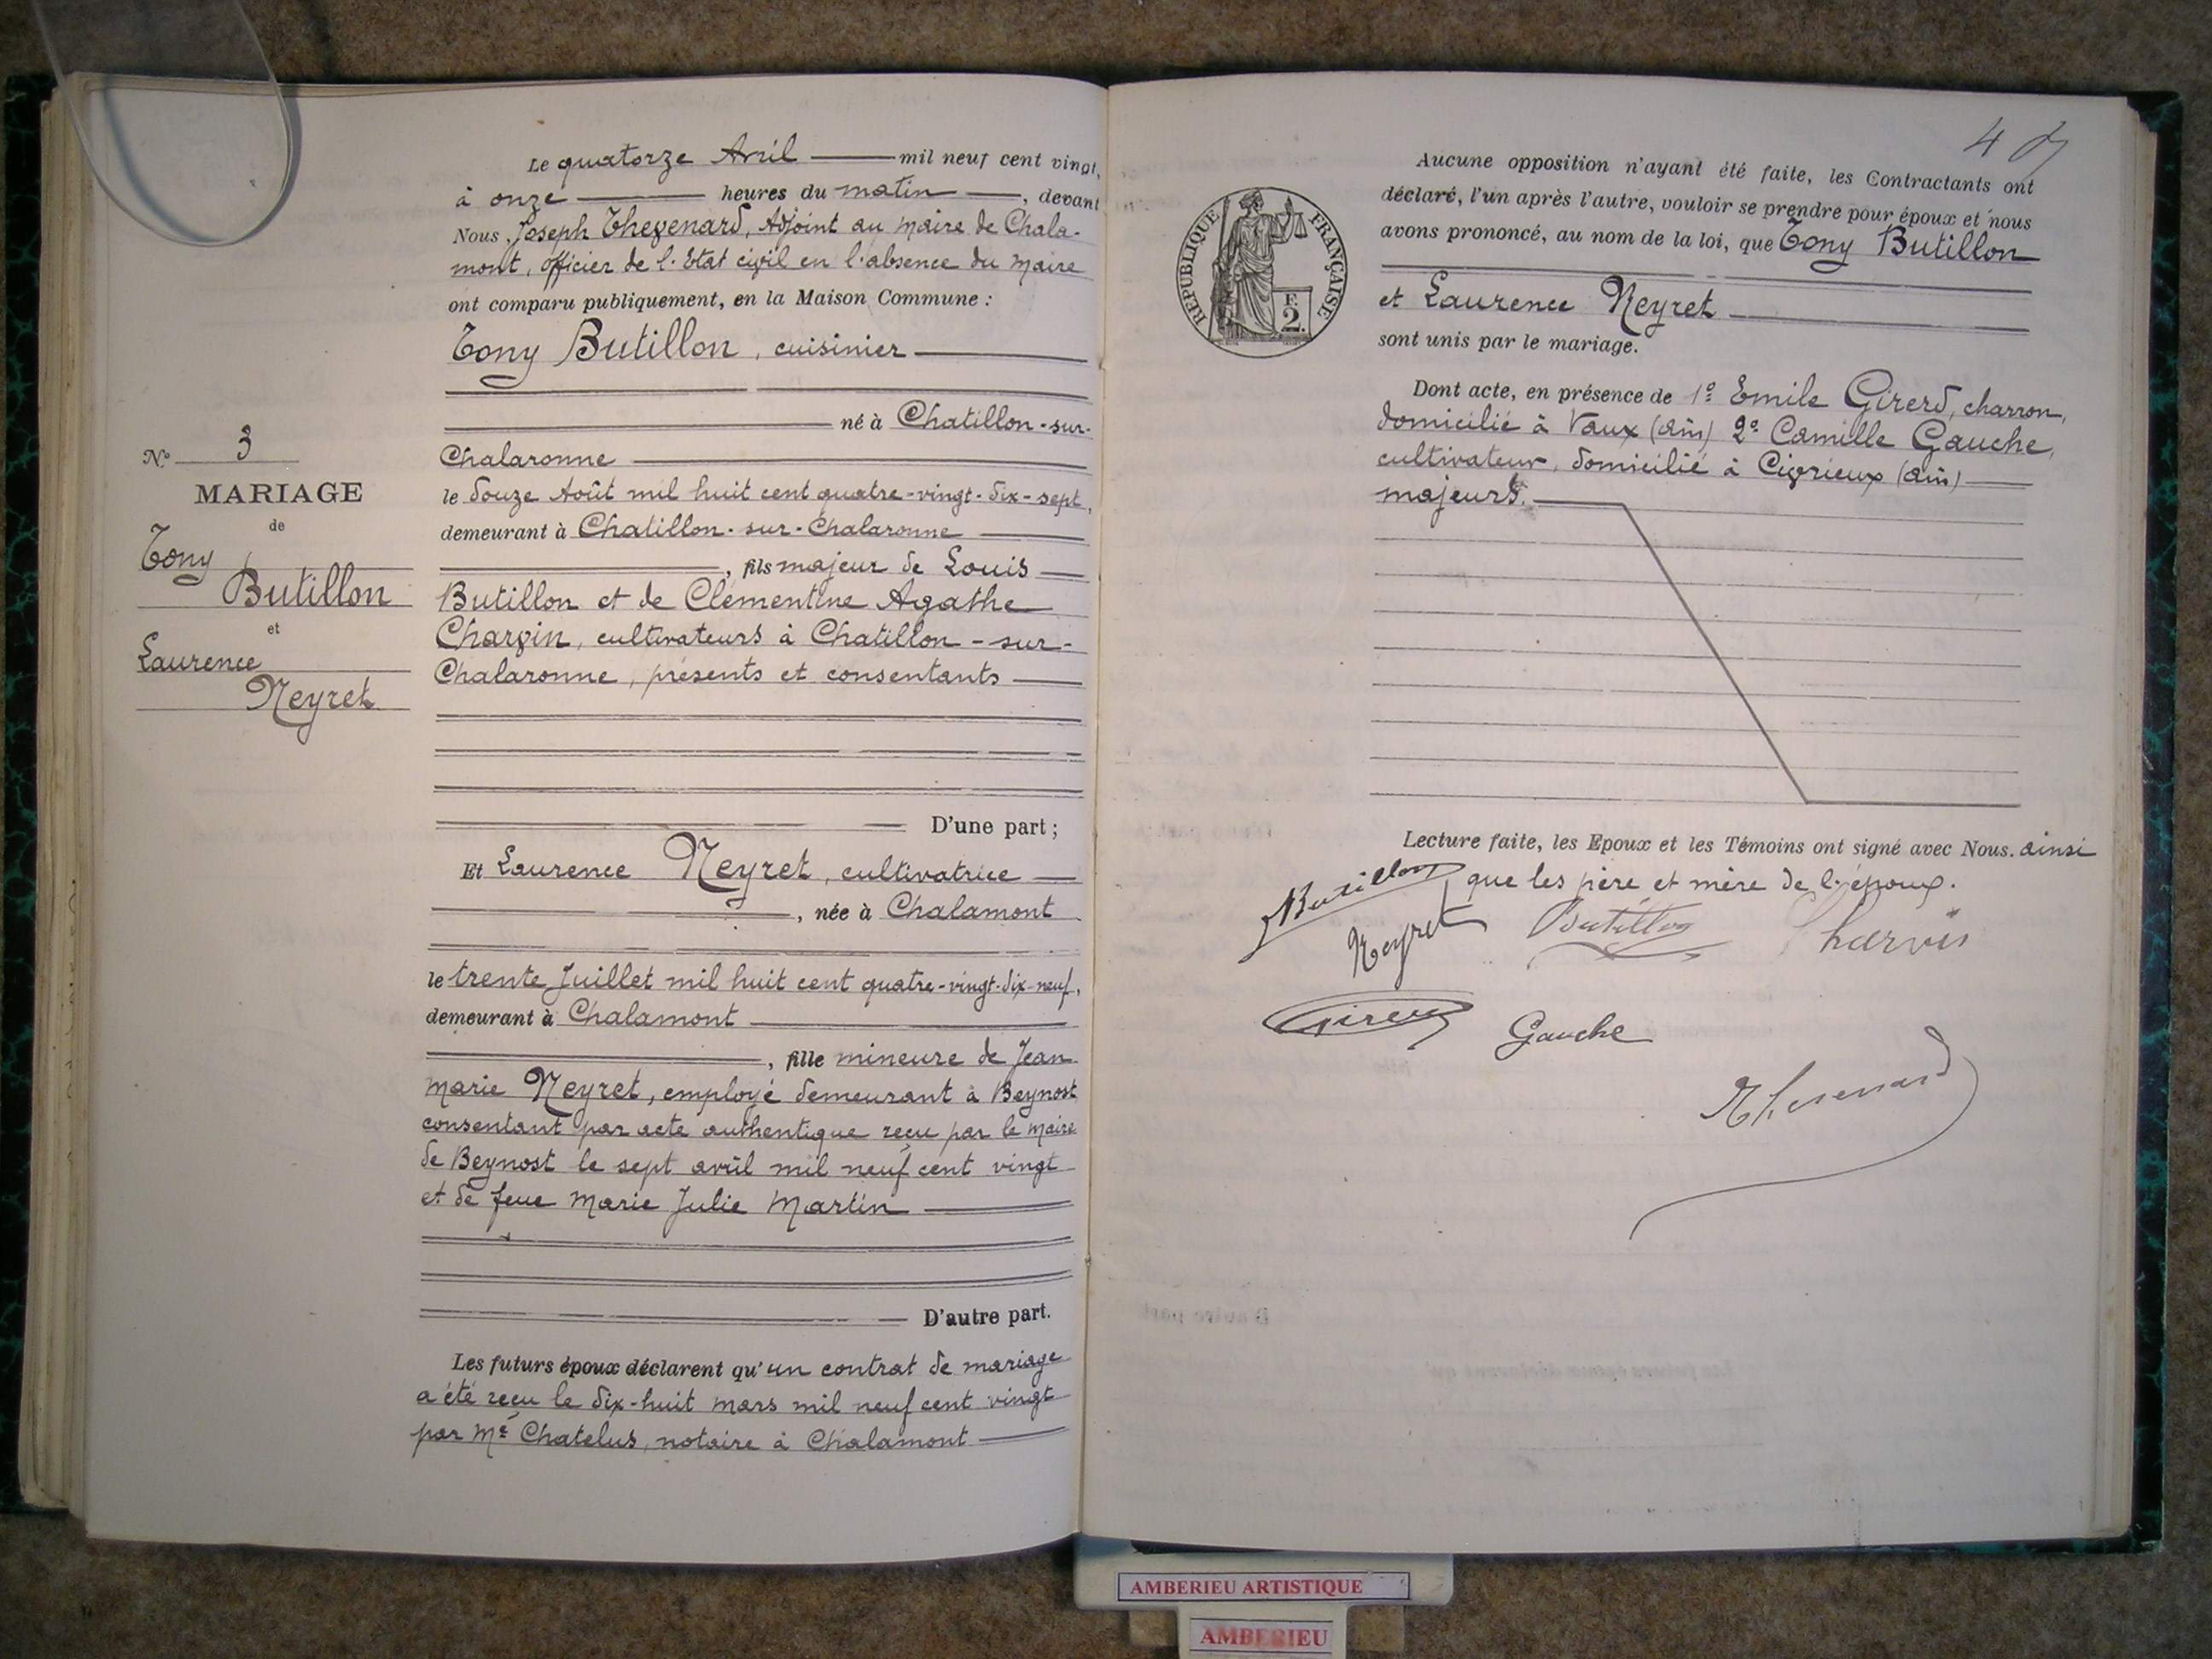 Le quatorze Avril mil neuf cent vingt,
à onze heures du matin, devant
Nous Joseph Thevenard, Adjoint au Maire de Chala-
mont, officier de l'Etat civil en l'absence du Maire
ont comparu publiquement, en la Maison Commune :
Tony Butillon, cuisinier
né à Chatillon-sur-
Chalaronne
le douze Août mil huit cent quatre-vingt-dix-sept,
demeurant à Chatillon-sur-Chalaronne
, fils majeur de Louis
Butillon et de Clémentine Agathe
Charvin, cultivateurs à Chatillon-sur-
Chalaronne, présents et consentants
D'une part ;
Et Laurence Neyret, cultivatrice
, née à Chalamont
le trente Juillet mil huit cent quatre-vingt-dix-neuf,
demeurant à Chalamont
, fille mineure de Jean
Marie Neyret, employé demeurant à Beynost
consentant par acte authentique reçu par le Maire
de Beynost le sept avril mil neuf cent vingt
et de feue Marie Julie Martin
D'autre part.
Les futurs époux déclarent qu'un contrat de mariage
a été reçu le dix-huit mars mil neuf cent vingt
par Me Chatelus, notaire à Chalamont
N° 3
MARIAGE
de
Tony
Butillon
et
Laurence
Neyret
4
RÉPUBLIQUE FRANÇAISE
F.
2.
Aucune opposition n'ayant été faite, les Contractants ont
déclaré, l'un après l'autre, vouloir se prendre pour époux et nous
avons prononcé, au nom de la loi, que Tony Butillon
et Laurence Neyret
sont unis par le mariage.
Dont acte, en présence de 1º Emile Girerd, charron,
domicilié à Vaux (Ain) 2º Camille Gauche,
cultivateur, domicilié à Civrieux (Ain)
majeurs.
Lecture faite, les Epoux et les Témoins ont signé avec Nous. ainsi
que les père et mère de l'époux.
Butillon
Neyret
Butillon
Charvin
Girerd
Gauche
Thevenard
AMBERIEU ARTISTIQUE
AMBERIEU